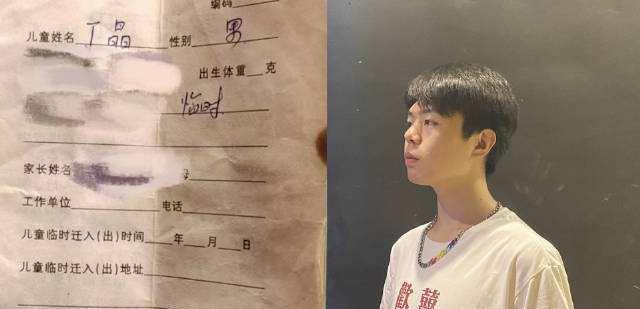 编码
儿童姓名 丁晶 性别 男
出生体重 克
临时
家长姓名
工作单位 电话
儿童临时迁入(出)时间 年 月 日
儿童临时迁入(出)地址
歡 藝